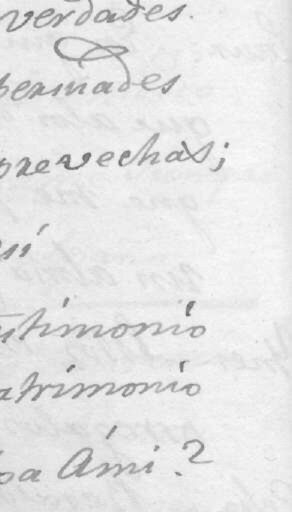 verdades.
perinades
provechas;
sú
utimonio
atrimonio
pa Ámi.?